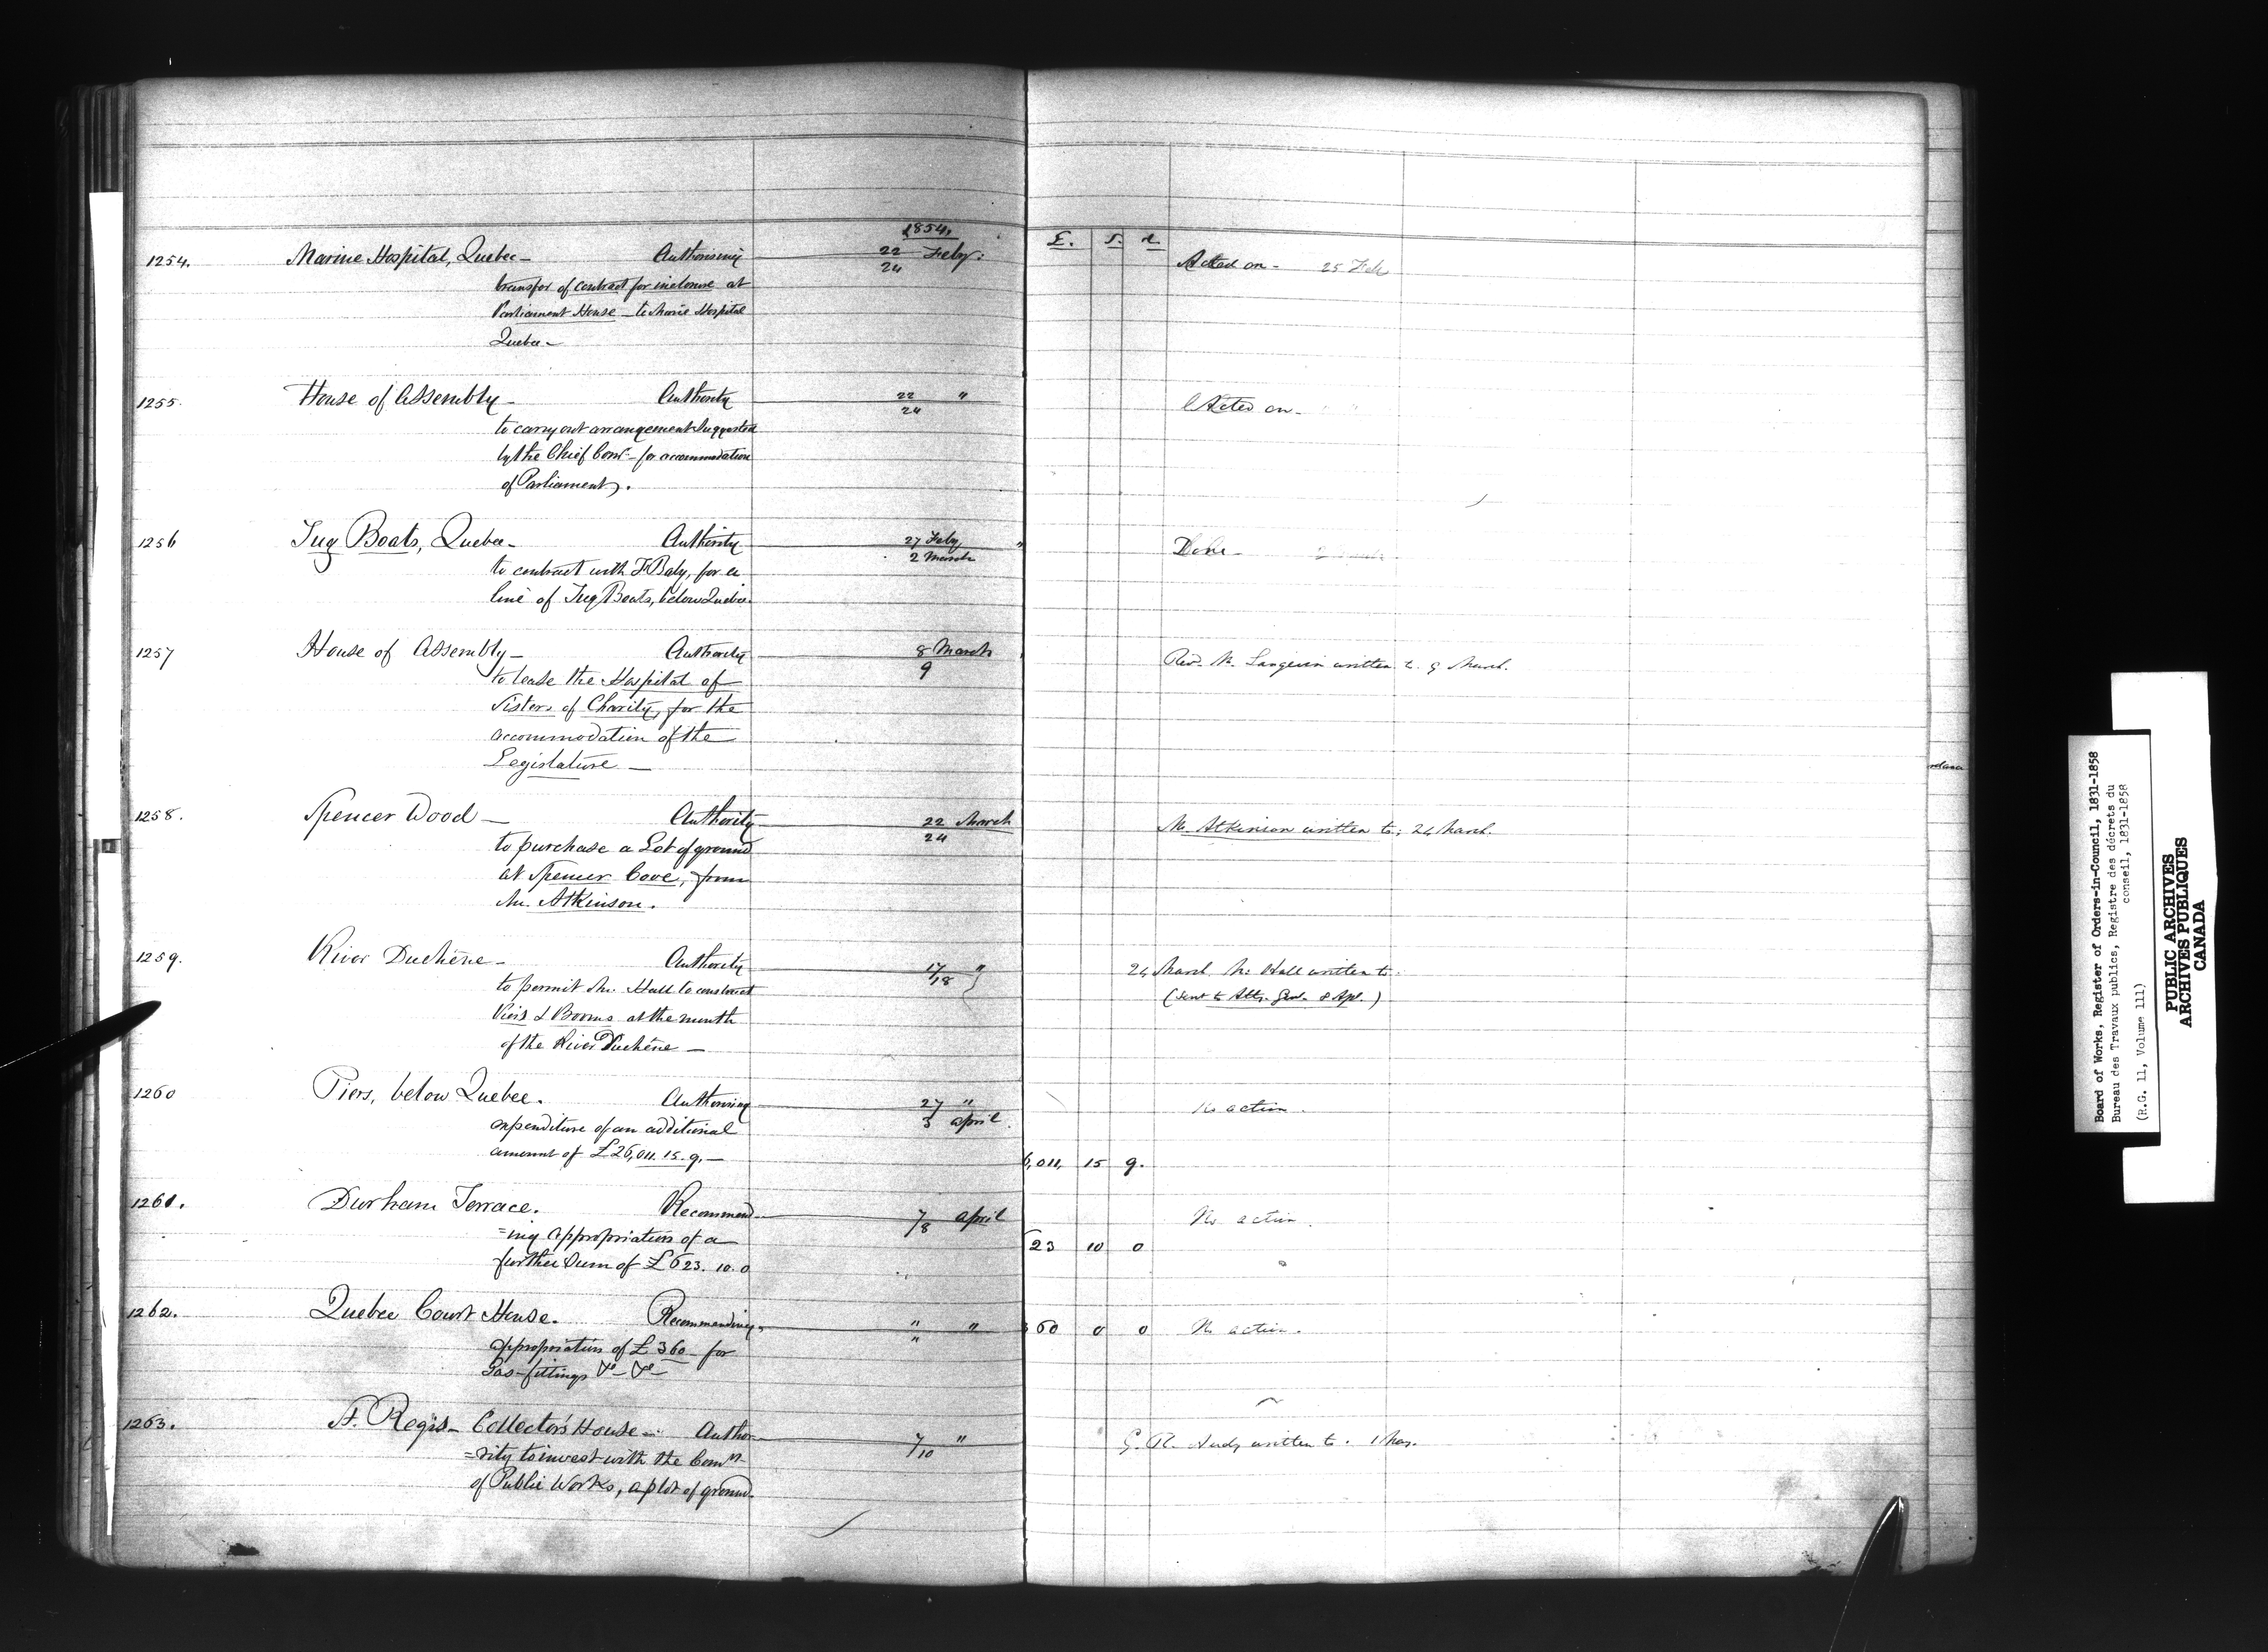 1854.
£. s. d.
1254. Marine Hospital, Quebec - Authorising 22 Feby. Acted on - 25 Feb
24
transfer of contract for inclosure at
Parliament House - to Marine Hospital
Quebec -
1255. House of Assembly - Authority 22 " Acted on -
24
to carry out arrangement suggested
by the Chief Comr. - for accommodation
of Parliament.
1256 Tug Boats, Quebec - Authority 27 Feby " Done -
2 March
to contract with F. Baby, for a
line of Tug Boats, below Quebec.
1257 House of Assembly - Authority 8 March Revd. Mr. Langevin written to 9 March.
9
to lease the Hospital of
Sisters of Charity, for the
accommodation of the
Legislature -
1258. Spencer Wood - Authority 22 March Mr. Atkinson written to; 24 March.
24
to purchase a Lot of ground
at Spencer Cove, from
Mr. Atkinson.
1259. River Duchêne - Authority 17/18 " 24 March Mr. Hall written to.
to permit Mr. Hall to construct (Sent to Atty. Genl. 8 Apl.)
Piers & Booms at the mouth
of the River Duchêne -
1260 Piers, below Quebec. Authorising 27 " No action.
3 April.
expenditure of an additional
amount of £26,011. 15. 9. - 6,011, 15 9.
1261. Durham Terrace. Recommend 7/8 April No action.
=ing appropriation of a 623 10 0
further Sum of £623. 10. 0
1262. Quebec Court House. Recommending " " 360 0 0 No action.
"
appropriation of £360 - for
Gas-fittings &c - &c -
1263. St. Regis - Collector's House - Autho- 7/10 " G. R. written to. 1 May.
=rity to invest with the Comrs.
of Public Works, a plot of ground.
Board of Works, Register of Orders-in-Council, 1831-1858
Bureau des Travaux publics, Registre des décrets du
conseil, 1831-1858
(R.G. 11, Volume 111)
PUBLIC ARCHIVES
ARCHIVES PUBLIQUES
CANADA